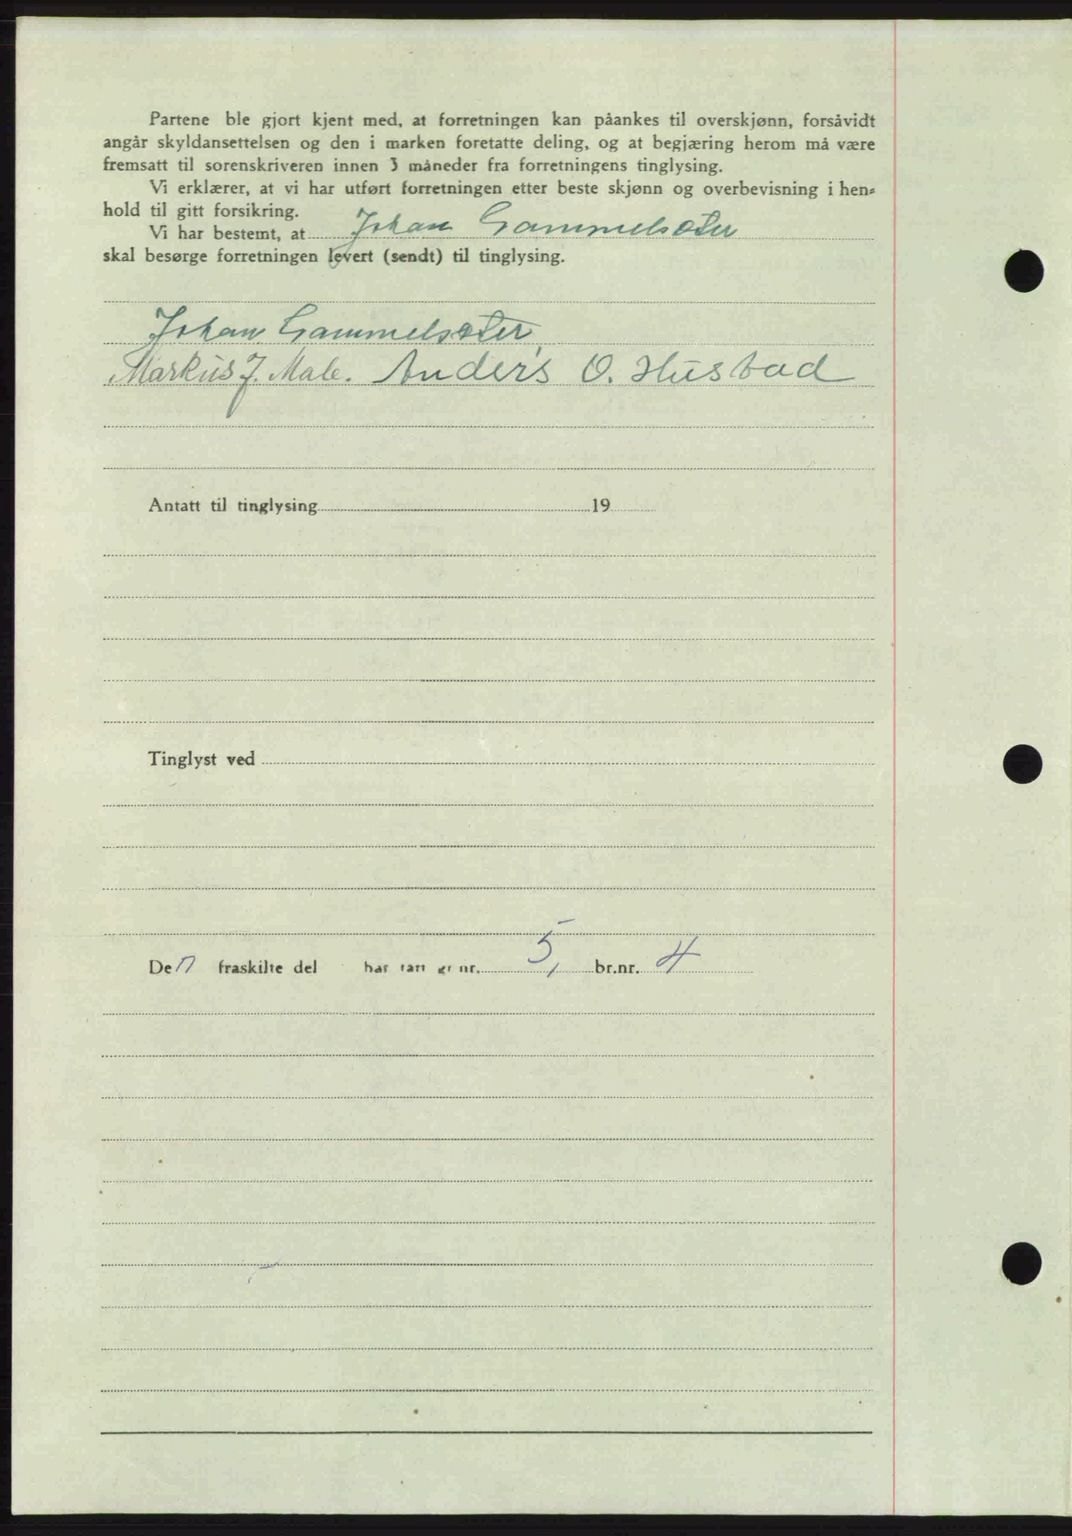 Partene ble gjort kjent med, at forretningen kan påankes til overskjønn, forsåvidt
angår skyldansettelsen og den i marken foretatte deling, og at begjæring herom må være
fremsatt til sorenskriveren innen 3 måneder fra forretningens tinglysing.
Vi erklærer, at vi har utført forretningen etter beste skjønn og overbevisning i hen-
hold til gitt forsikring.
Vi har bestemt, at Johan Gammelsæter
skal besørge forretningen levert (sendt) til tinglysing.
Johan Gammelsæter,
Markus J. Male. Anders O. Hustad
Antatt til tinglysing 19
Tinglyst ved
Den fraskilte del har fått gr.nr. 5, br.nr. 4